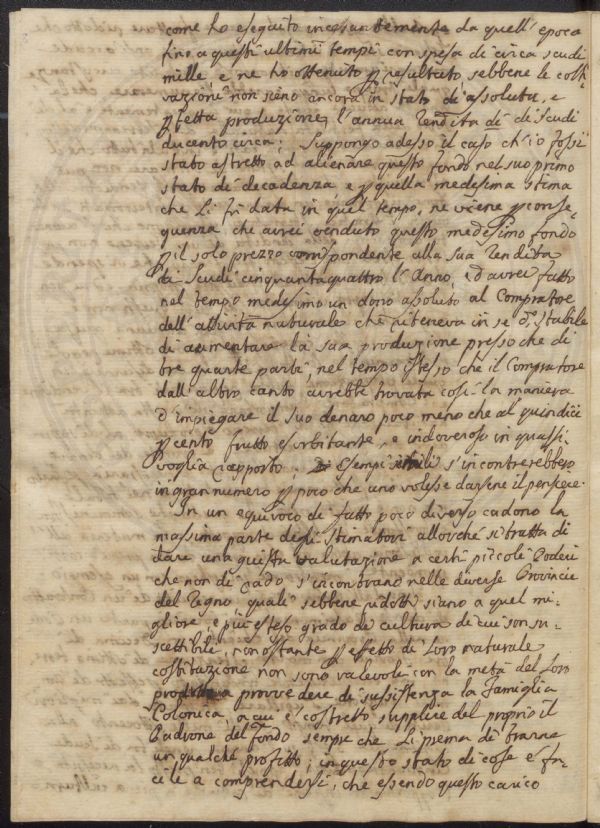 come ho eseguito incessantemente da quell'epoca
fino a questi ultimi tempi con spesa di circa scudi
mille e ne ho ottenuto p resultato sebbene le colti-
vazioni non sieno ancora in stato di assoluta, e
pfetta produzione, l'annua rendita di di scudi
ducento circa; Suppongo adesso il caso ch'io fossi
stato astretto ad alienare questo fondo nel suo primo
stato di decadenza e p quella medesima stima
che li fù data in quel tempo, ne viene p conse-
guenza che avrei venduto questo medesimo fondo
p il solo prezzo corrispondente alla sua rendita
di Scudi cinquantaquattro l'Anno, ed avrei fatto
nel tempo medesimo un dono assoluto al Compratore
dell'attività naturale che riteneva in se d.º stabile
di aumentare la sua produzione presso che di
tre quarte parti, nel tempo istesso che il Compratore
dall'altro canto avrebbe trovata così la maniera
d'impiegare il suo denaro poco meno che al quindici
p cento frutto esorbitante, e indoveroso in qualsi-
voglia rapporto. Esempi simili s'incontrerebbero
in gran numero p poco che uno volesse darsene il pensiere.
In un equivoco di fatto poco diverso cadono la
massima parte degli stimatori allorché si tratta di
dare una giusta valutazione a certi piccoli Poderi
che non di rado s'incontrano nelle diverse Provincie
del Regno, quali sebbene ridotti siano a quel mi-
gliore, e più esteso grado di cultura di cui son su-
scettibili, non ostante p effetto di Loro naturale
costituzione non sono valevoli con la metà del Loro
prodotto a provvedere di sussistenza la famiglia
Colonica, a cui é costretto supplire del proprio il
Padrone del fondo sempre che li prema di trarne
un qualche profitto; in questo stato di cose é fa-
cile a comprendersi, che essendo questo carico